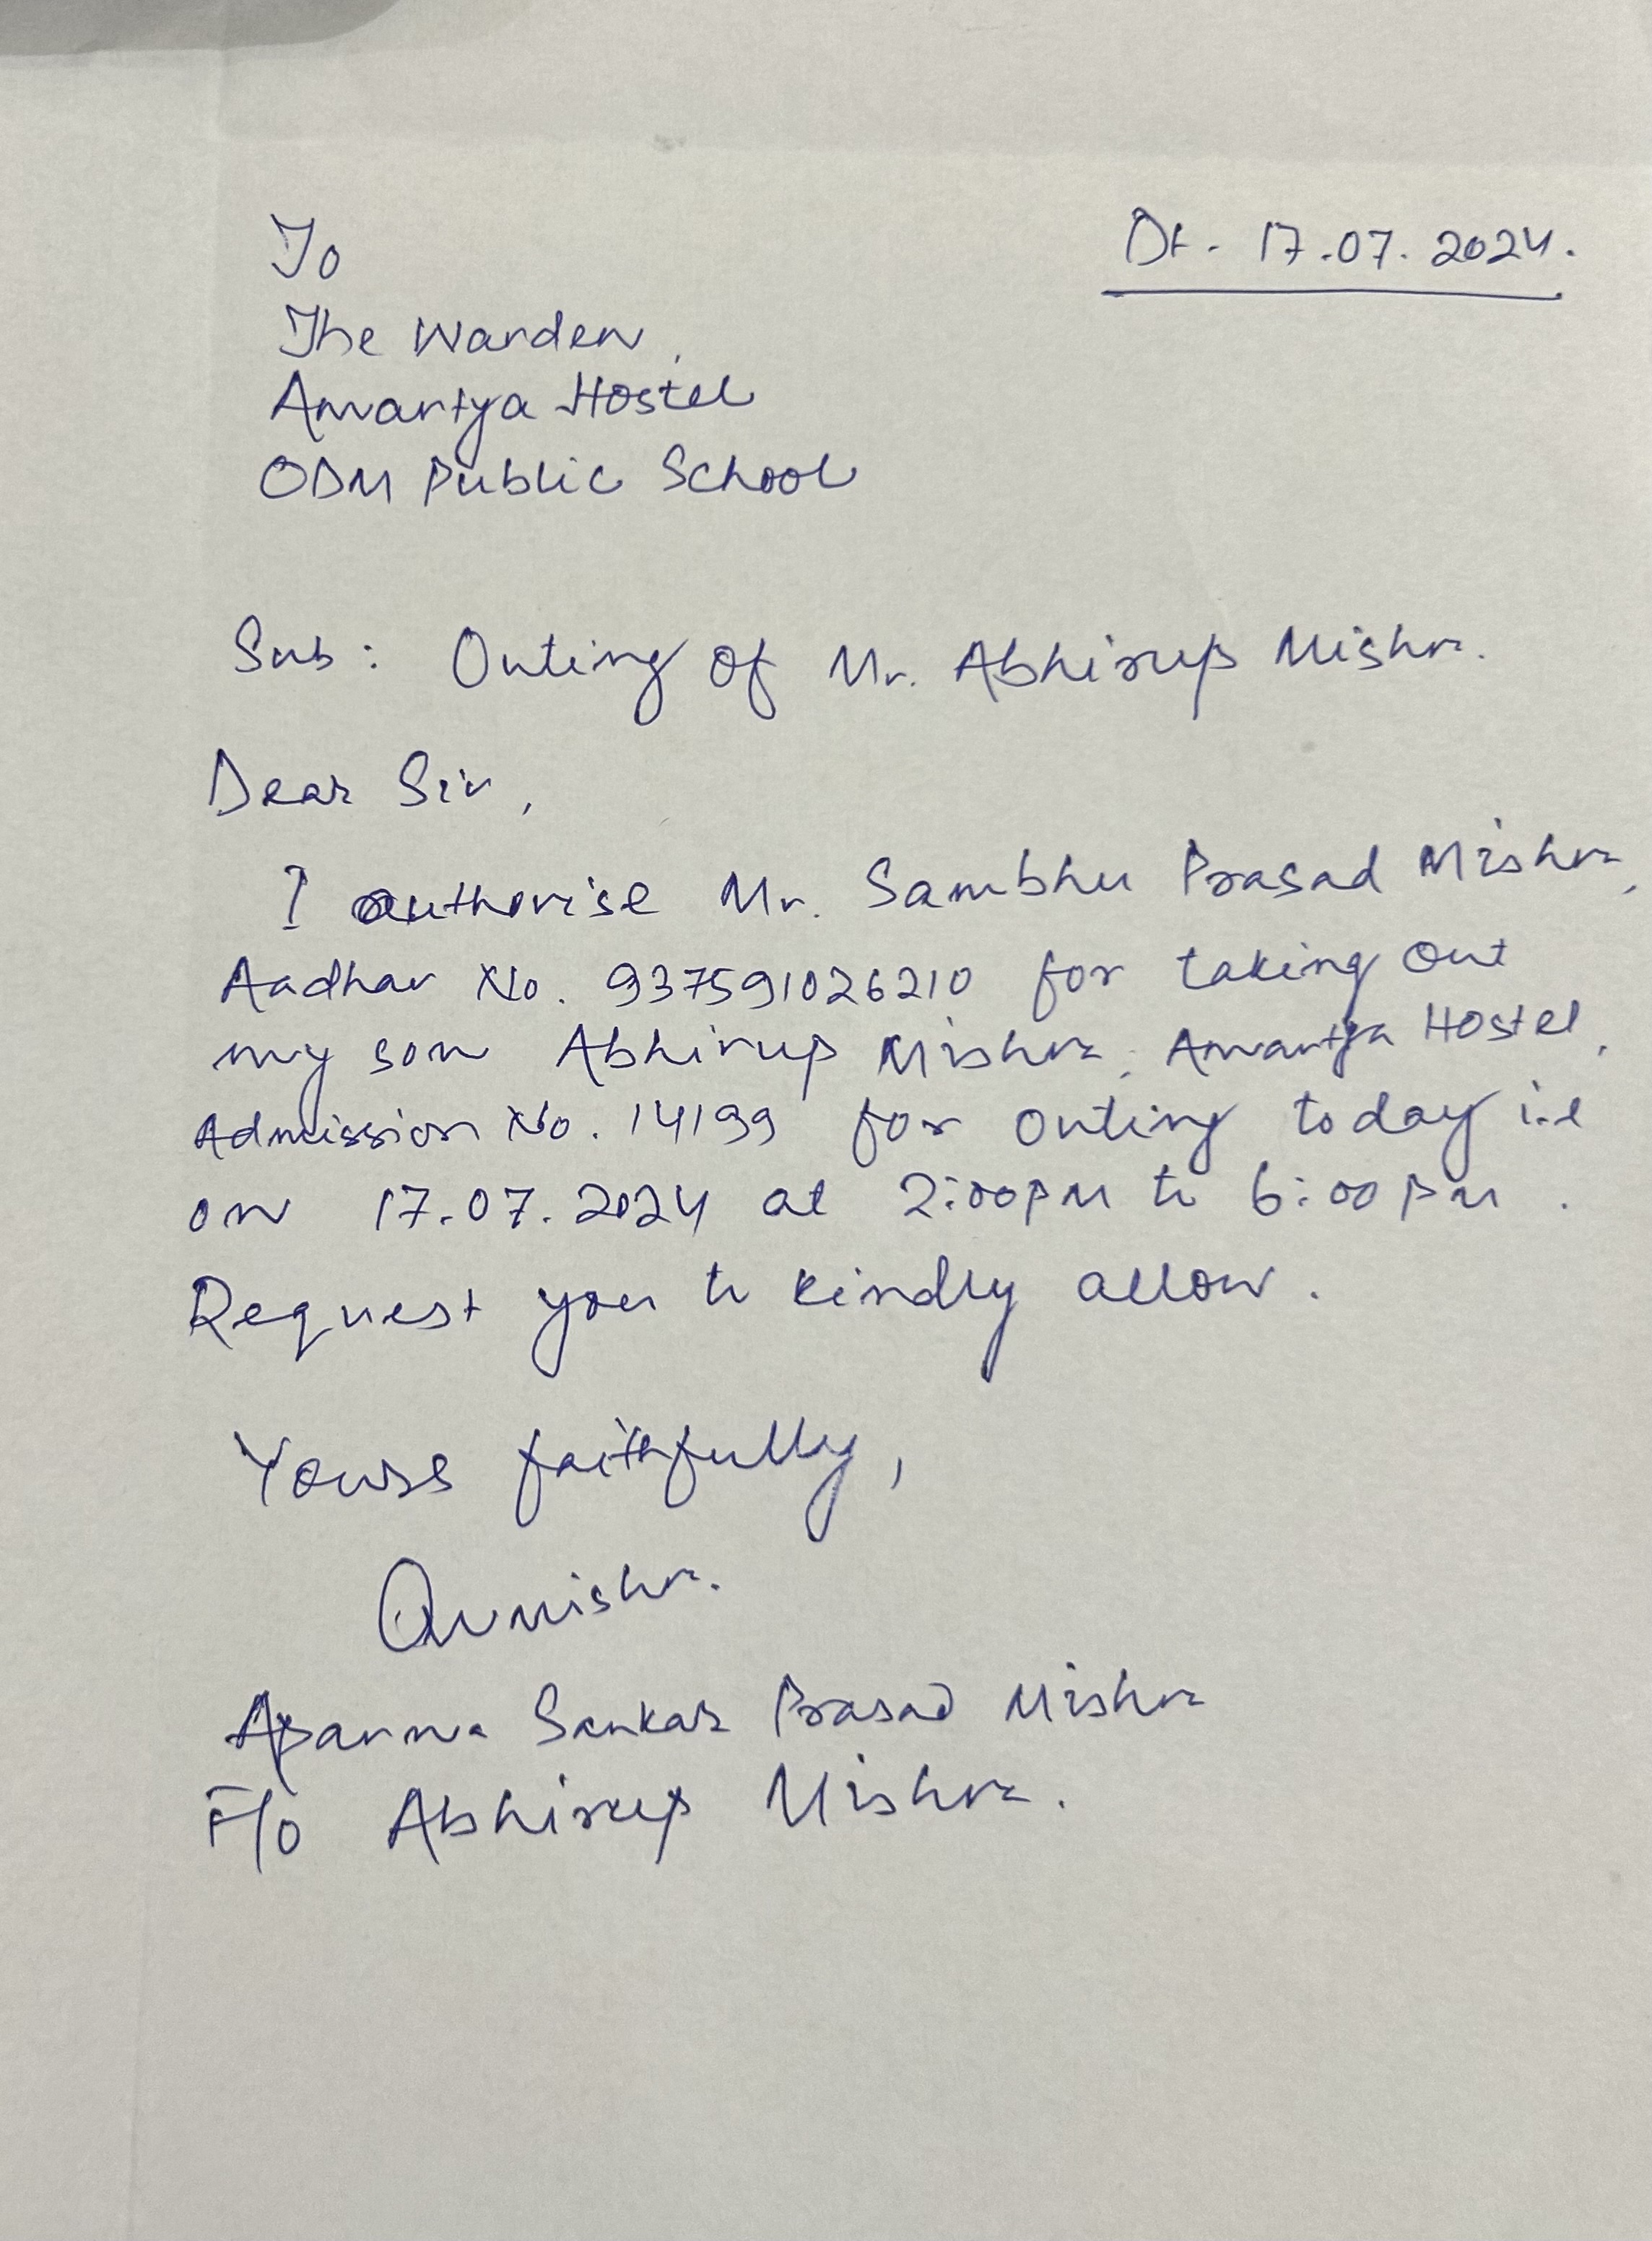 To
Dt. 17.07.2024.
The Warden,
Amartya Hostel
ODM Public School
Sub: Outing of Mr. Abhirup Mishra.
Dear Sir,
I authorise Mr. Sambhu Prasad Mishra,
Aadhar No. 937591026210 for taking out
my son Abhirup Mishra, Amartya Hostel,
Admission No. 14199 for outing today i.e
on 17.07.2024 at 2:00PM to 6:00PM.
Request you to kindly allow.
Yours faithfully,
Aparna Sankar Prasad Mishra
F/o Abhirup Mishra.